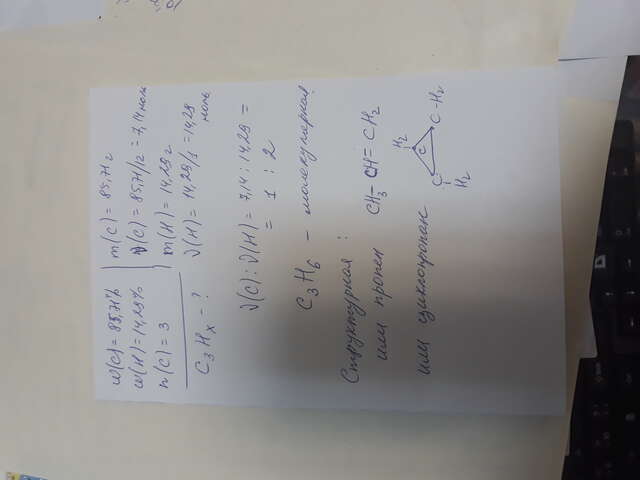 w(C) = 85,71%
w(H) = 14,29%
n(C) = 3
C3Hx - ?
m(C) = 85,71 г
ν(C) = 85,71/12 = 7,14 моль
m(H) = 14,29 г
ν(H) = 14,29/1 = 14,29
моль
ν(C) : ν(H) = 7,14 : 14,29 =
= 1 : 2
C3H6 - молекулярная.
Структурная :
или пропен CH3 - CH = CH2
или циклопропан
H2
C
C C - H2
H2